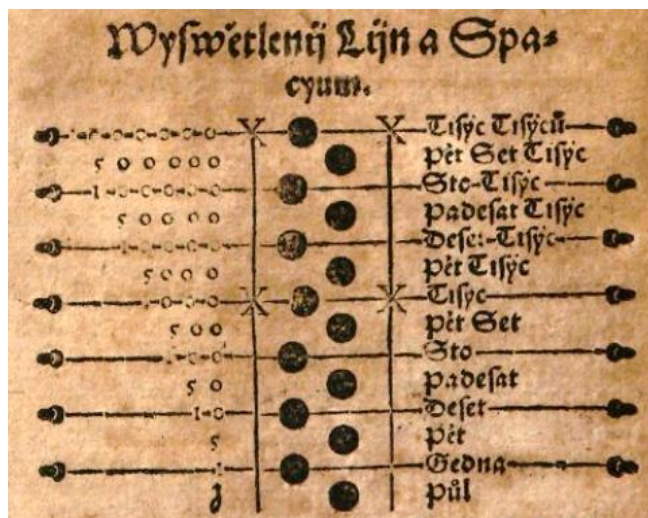 Wyſwětlenij Lijn a Spa⸗
cyum.
1000000 X X Tiſyc Tiſyců
500000 Pět Set Tiſyc
100000 Sto-Tiſyc
50000 Padeſat Tiſyc
10000 Deſet-Tiſyc
5000 Pět Tiſyc
1000 X X Tiſyc
500 Pět Set
100 Sto
50 Padeſat
10 Deſet
5 Pět
1 Gedna
Půl